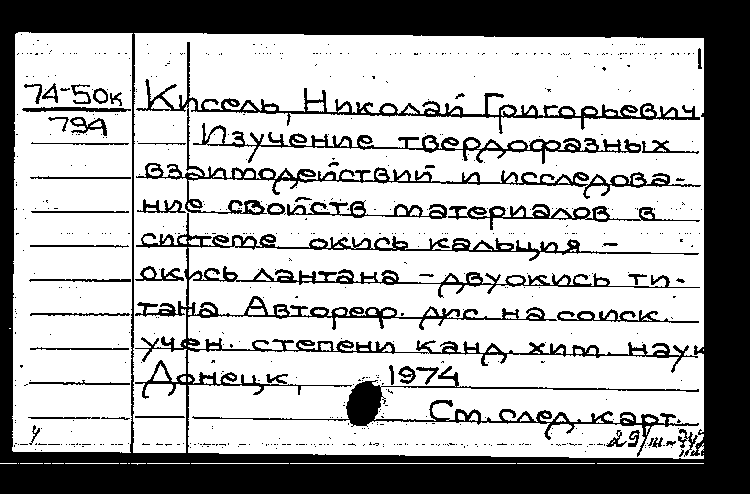 74-50к
794
Кисель, Николай Григорьевич.
Изучение твердофазных
взаимодействий и исследова-
ние свойств материалов в
системе окись кальция -
окись лантана - двуокись ти-
тана. Автореф. дис. на соиск.
учен. степени канд. хим. наук
Донецк, 1974
См. след. карт.